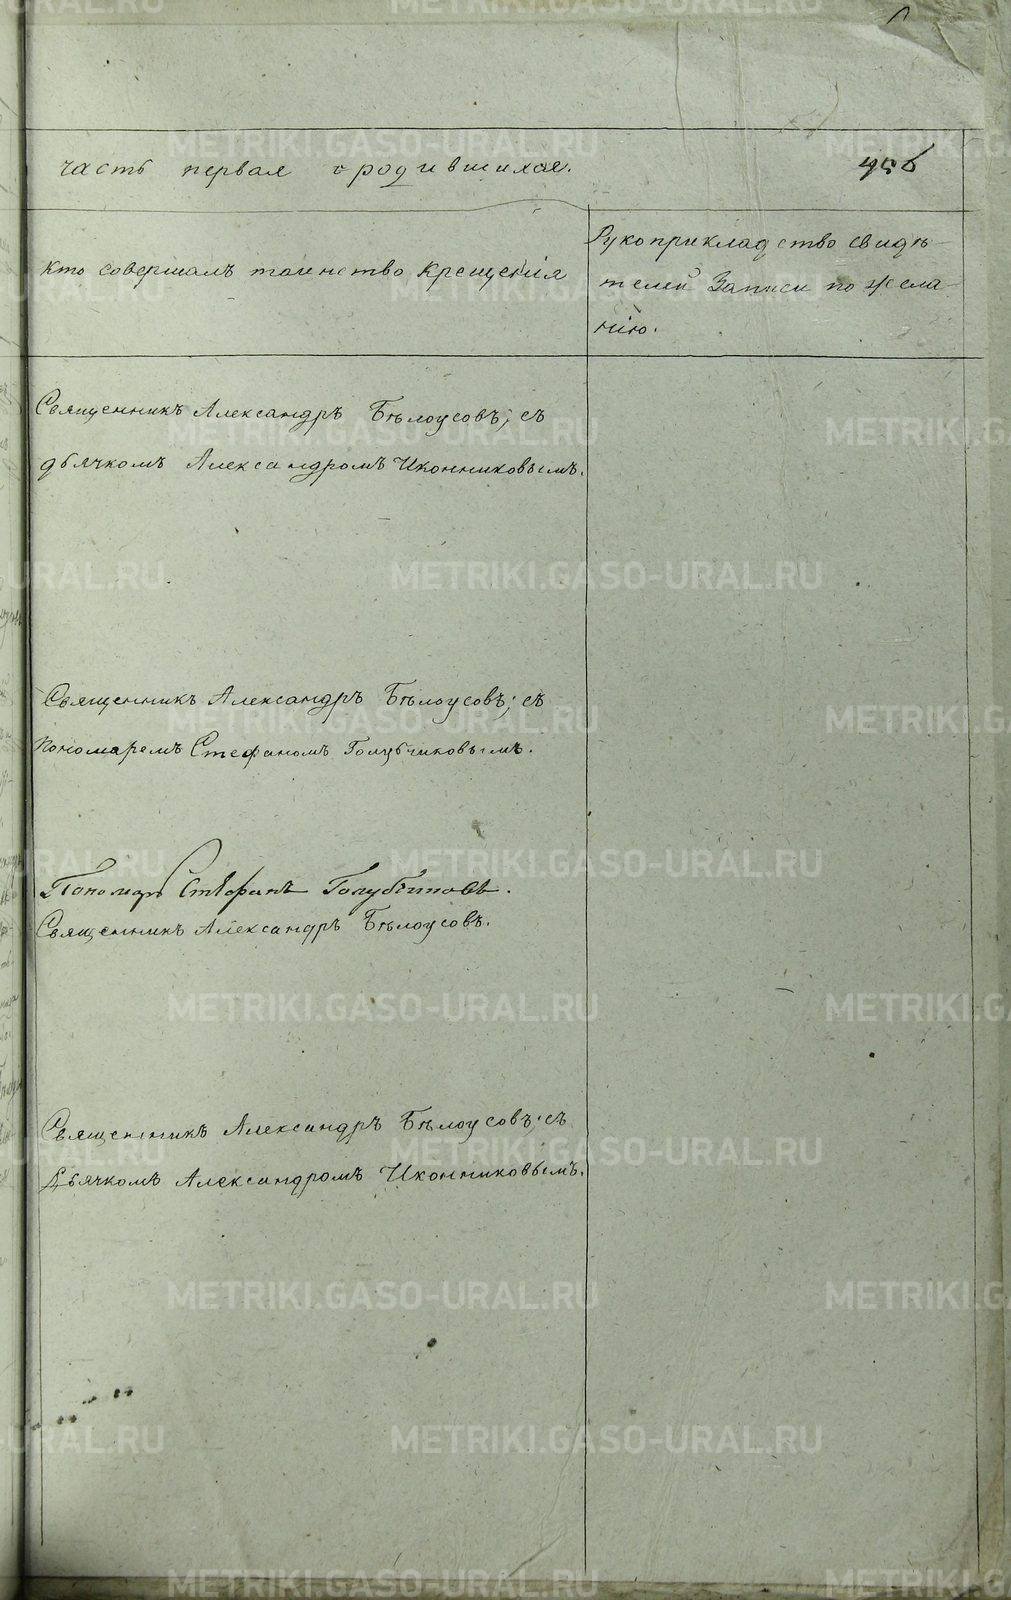 часть первая о родившихся.
456
кто совершалъ таинство крещенія
Рукоприкладство свидѣ-
телей записи по жела-
нію.
Священникъ Александръ Бѣлоусовъ; съ
дьячкомъ Александромъ Иконниковымъ.
Священникъ Александръ Бѣлоусовъ; съ
пономаремъ Стефаномъ Голубчиковымъ.
Пономарь Стефанъ Голубчиковъ.
Священникъ Александръ Бѣлоусовъ.
Священникъ Александръ Бѣлоусовъ; съ
Дьячкомъ Александромъ Иконниковымъ.
METRIKI.GASO-URAL.RU